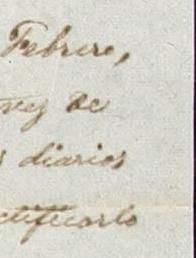 Febrero,
vez de
s diarios
ctificarlo